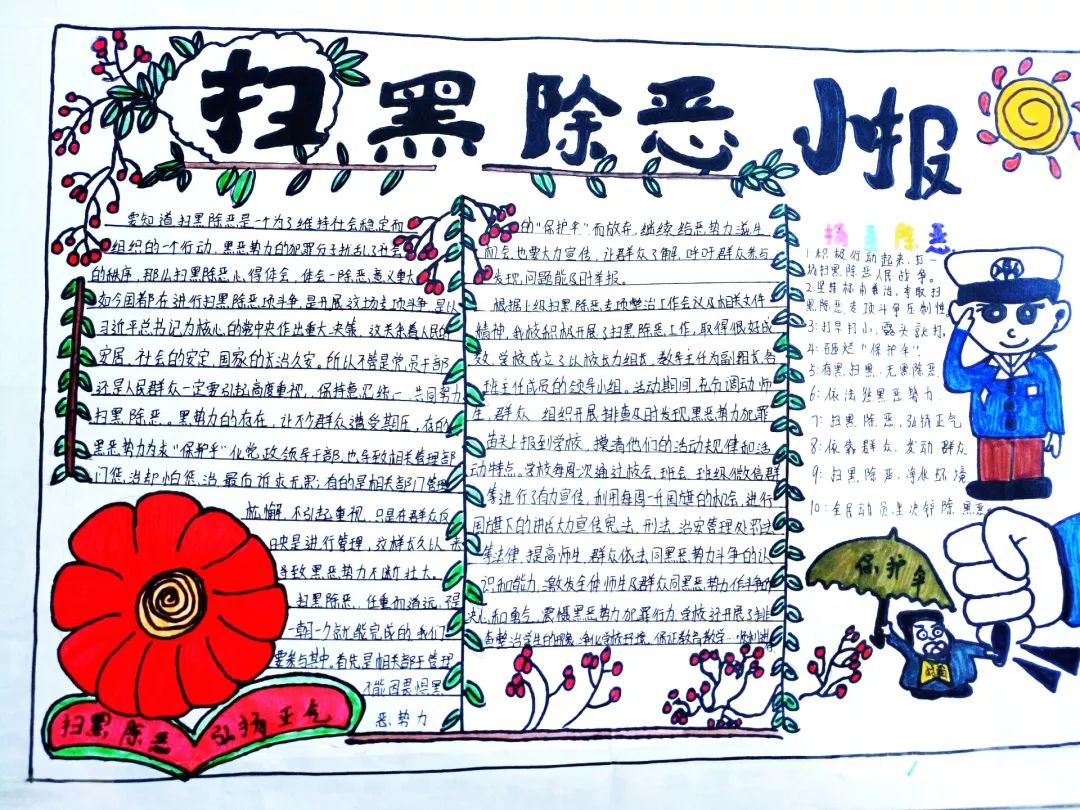 扫黑除恶小报
要知道扫黑除恶是一个为了维持社会稳定而
组织的一个行动，黑恶势力的犯罪分子扰乱了社会
的秩序，那么扫黑除恶心得体会，体会一除恶意义重大
如今国都在进行扫黑除恶项斗争，是开展这功专项斗争，是以
习近平总书记为核心的党中央作出重大决策，这关系着人民的
安居，社会的安定，国家的长治久安。所以不管是党员干部
还是人民群众一定要引起高度重视，保持意见统一，共同努力
扫黑除恶。黑势力的存在，让不少群众遭受期压，存的
黑恶势力为求“保护伞”化党政领导干部，也导致相关管理部
门惯治却怕惯治最后诉求无果；有的是相关部门管理
松懈，不引起重视，只是在群众反
映是进行管理，这样长久以
导致黑恶势力不断壮大。
扫黑除恶，任重而道远，
一朝一夕就能完成的，我们
要参与其中，首先是相关部于管理
不能因畏惧黑
恶势力
的“保护伞”而放弃，继续给恶势力滋生
机会，也要大力宣传，让群众了解，呼吁群众参与
发现问题能及时举报。
根据上级扫黑除恶专项整治工作会议及相关文件
精神，我校积极开展了扫黑除恶工作，取得很好成
效，学校成立了以校长为组长，教导主任为副组长各
班主任成员的领导小组。活动期间，充分调动师
生，群众，组织开展排查及时发现黑恶势力犯罪
苗头上报到学校，摸清他们的活动规律和活
动特点。学校每周次通过校会，班会，班级微信群
等进行了有力宣传，利用每周一升国旗的机会，进行
国旗下的讲话大力宣传宪法，刑法，治安管理处罚法
等法律，提高师生，群众依法同黑恶势力斗争的认
识和能力，激发全体师生及群众同黑恶势力作斗争的
决心和勇气，震慑黑恶势力犯罪行为，学校还开展了排
查整治学生的现象，净化学校环境，保证教育教学
扫黑除恶
1：积极行动起来，打一
场扫黑除恶人民战争。
2：坚持标本兼治，夺取扫
黑除恶专项斗争压制性
3：打早打小，露头就打
4：砸烂“保护伞”
5：有黑扫黑，无黑除恶
6：依法惩黑恶势力
7：扫黑除恶，弘扬正气
8：依靠群众，发动群众
9：扫黑除恶，净化环境
10：全民动员坚决铲除黑恶
保护伞
扫黑除恶 弘扬正气